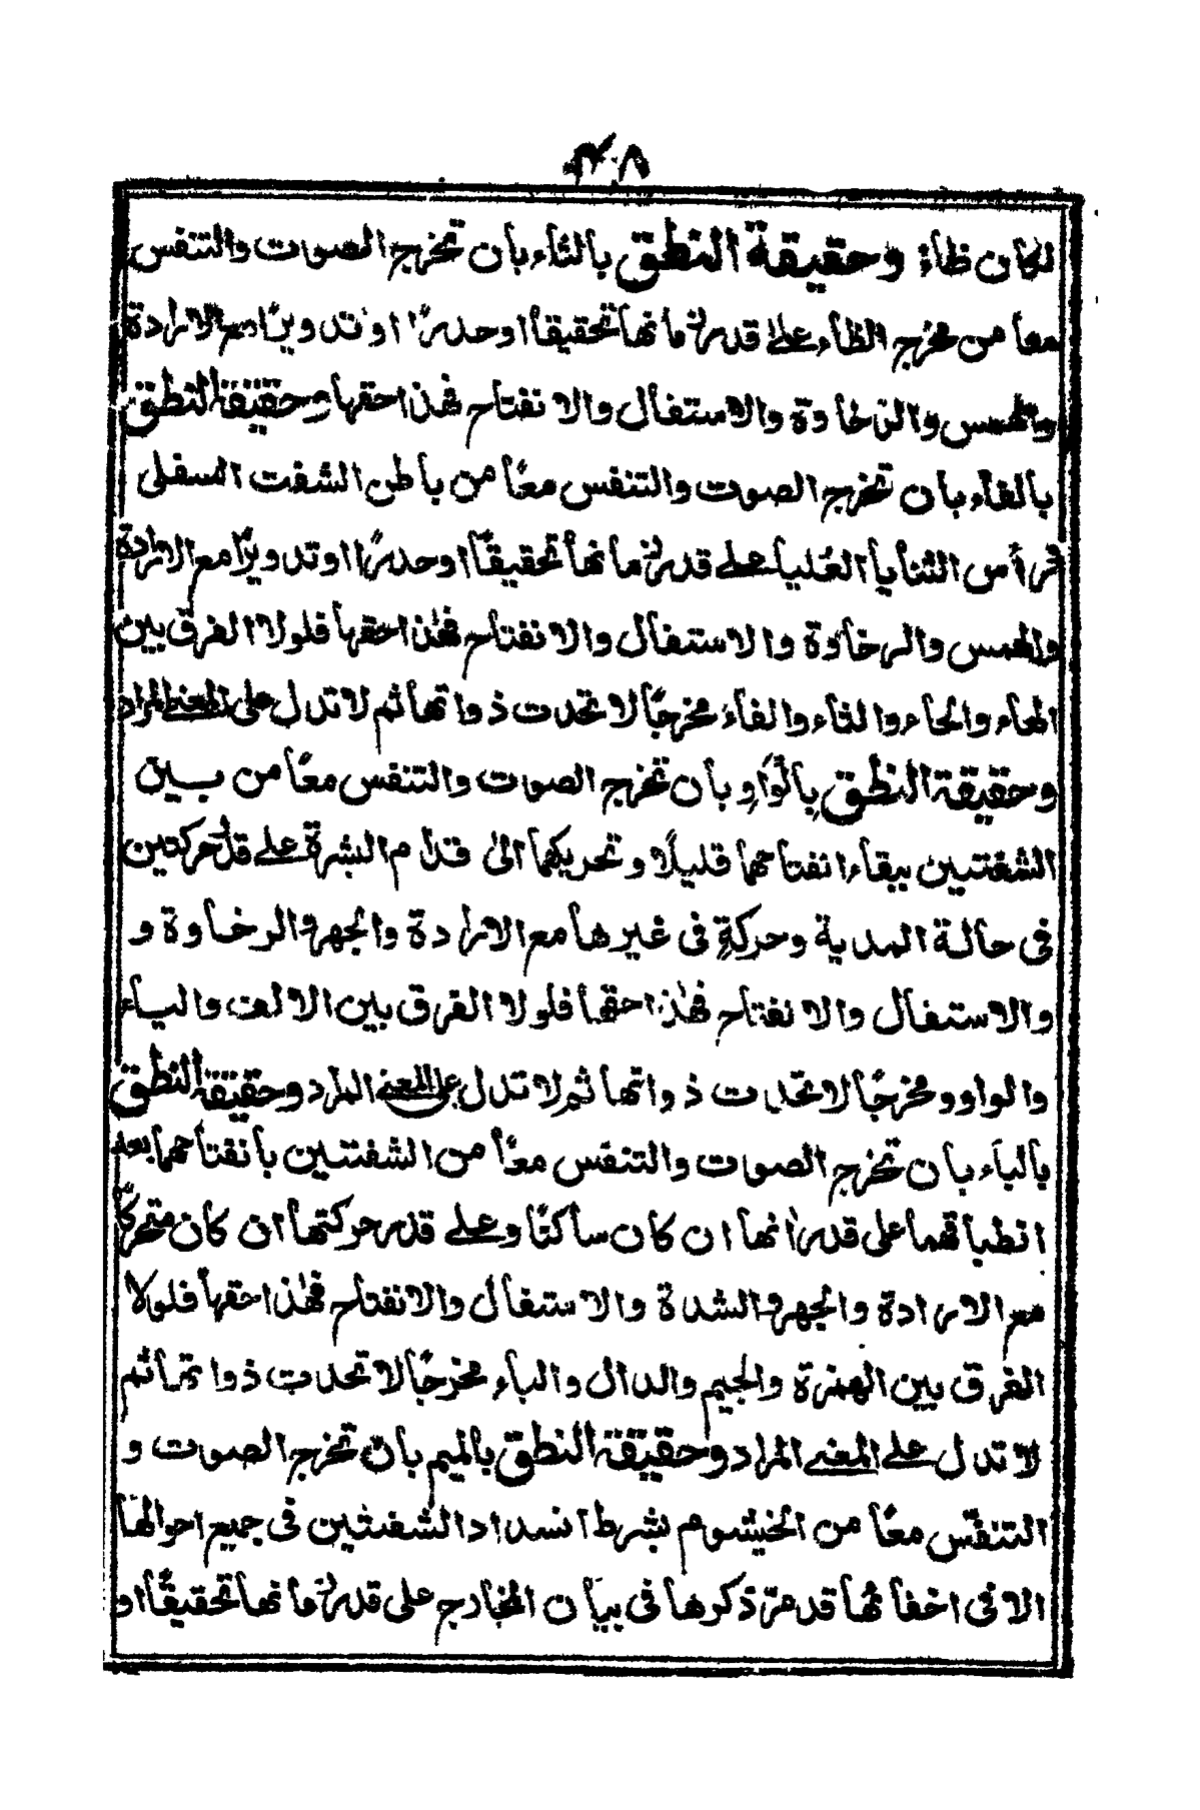 ٣٠٨
لكان ظاءً وحقيقة النطق بالثاء بان تخرج الصوت والتنفس
معا من مخرج الظاء على قدر زمانها تحقيقا او حدرًا او تدويرًا مع الارادة
والهمس والرخاوة والاستفال والانفتاح فهذا حقها وحقيقة النطق
بالفاء بان تخرج الصوت والتنفس معًا من باطن الشفت السفلى
فرأس الثنايا العُليا على قدر زمانها تحقيقًا او حدرًا او تدويرًا مع الارادة
والهمس والرخاوة والاستفال والانفتاح فهٰذا حقها فلولا الفرق بين
الهاء والحاء والثاء والفاء مخرجًا لاتحدت ذواتها ثم لا تدل على المعنى المراد
وحقيقة النطق بالوَاوِ بان تخرج الصوت والتنفس معًا من بين
الشفتين ببقاء انفتاحهما قليلًا وتحريكهما الى قدام البشرة على قدر حركتين
فى حالة المدية وحركةٍ فى غيرها مع الارادة والجهر والرخاوة و
والاستفال والانفتاح فهٰذا حقها فلولا الفرق بين الالف والياء
والواو و مخرجًا لاتحدت ذواتها ثم لا تدل على المعنى المراد وحقيقة النطق
بالباء بان تخرج الصوت والتنفس معًا من الشفتين بانفتاحهما بعد
انطباقهما على قدر انها ان كان ساكنًا وعلى قدر حركتها ان كان متحركًا
مع الارادة والجهر والشدة والاستفال والانفتاح فهٰذا حقها فلولا
الفرق بين الهمزة والجيم والدال والباء مخرجًا لاتحدت ذواتها ثم
لا تدل على المعنى المراد وحقيقة النطق بالميم بان تخرج الصوت و
التنفس معًا من الخيشوم بشرط انسداد الشفتين فى جميع احوالها
الا فى اخفائها قد مرّ ذكرها فى بيان المخارج على قدر زمانها تحقيقًا او